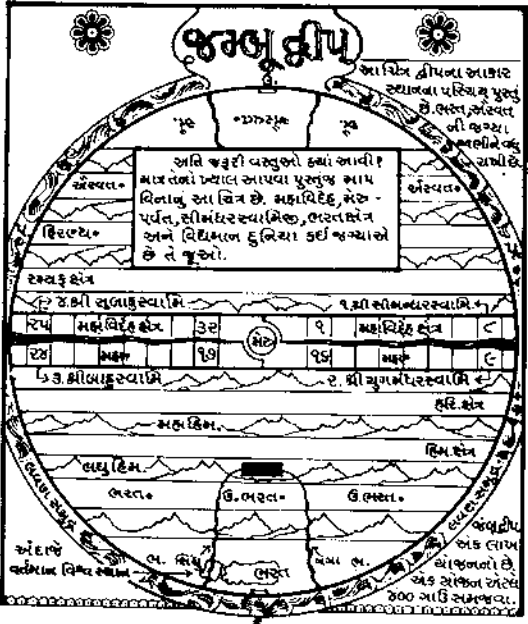 જમ્બૂ દ્વીપ
આ ચિત્ર દ્વીપના આકાર
સ્થાનના પરિચય પુરતું
છે. ભરત, ઐરવત
ની જગ્યા
અતિ જરૂરી વસ્તુઓ ક્યાં આવી?
માત્ર તેનો ખ્યાલ આપવા પુરતુંજ માપ
વિનાનું આ ચિત્ર છે. મહાવિદેહ, મેરુ-
પર્વત, સીમંધરસ્વામિજી, ભરતક્ષેત્ર
અને વિદ્યમાન દુનિયા કઈ જગ્યાએ
છે તે જૂઓ.
ઐરવત૰ ઐરવત૰
હિરણ્ય૰
રમ્યક્ ક્ષેત્ર
૪. શ્રી સુબાહુસ્વામિ ૧. શ્રી સીમન્ધરસ્વામિ
૨૫ મહાવિદેહ ક્ષેત્ર ૩૨ મેરુ ૧ મહાવિદેહ ક્ષેત્ર ૮
૨૪ ૧૭ ૧૬ ૯
૩. શ્રી બાહુસ્વામિ ૨. શ્રી યુગમંધરસ્વામિ
હરિ. ક્ષેત્ર
મહાહિમ.
હિમ. ક્ષેત્ર
લઘુહિમ.
ભરત૰ ઉ. ભરત૰ ઉ. ભરત૰
લવણ સમુદ્ર લવણ સમુદ્ર
ભ. સિંધુ ગંગા ભ.
ભરત
અંદાજે
વર્તમાન વિશ્વ સ્થાન
જંબૂદ્વીપ
એક લાખ
યોજનનો છે.
એક યોજન એટલે
૪૦૦ ગાઉ સમજવા.